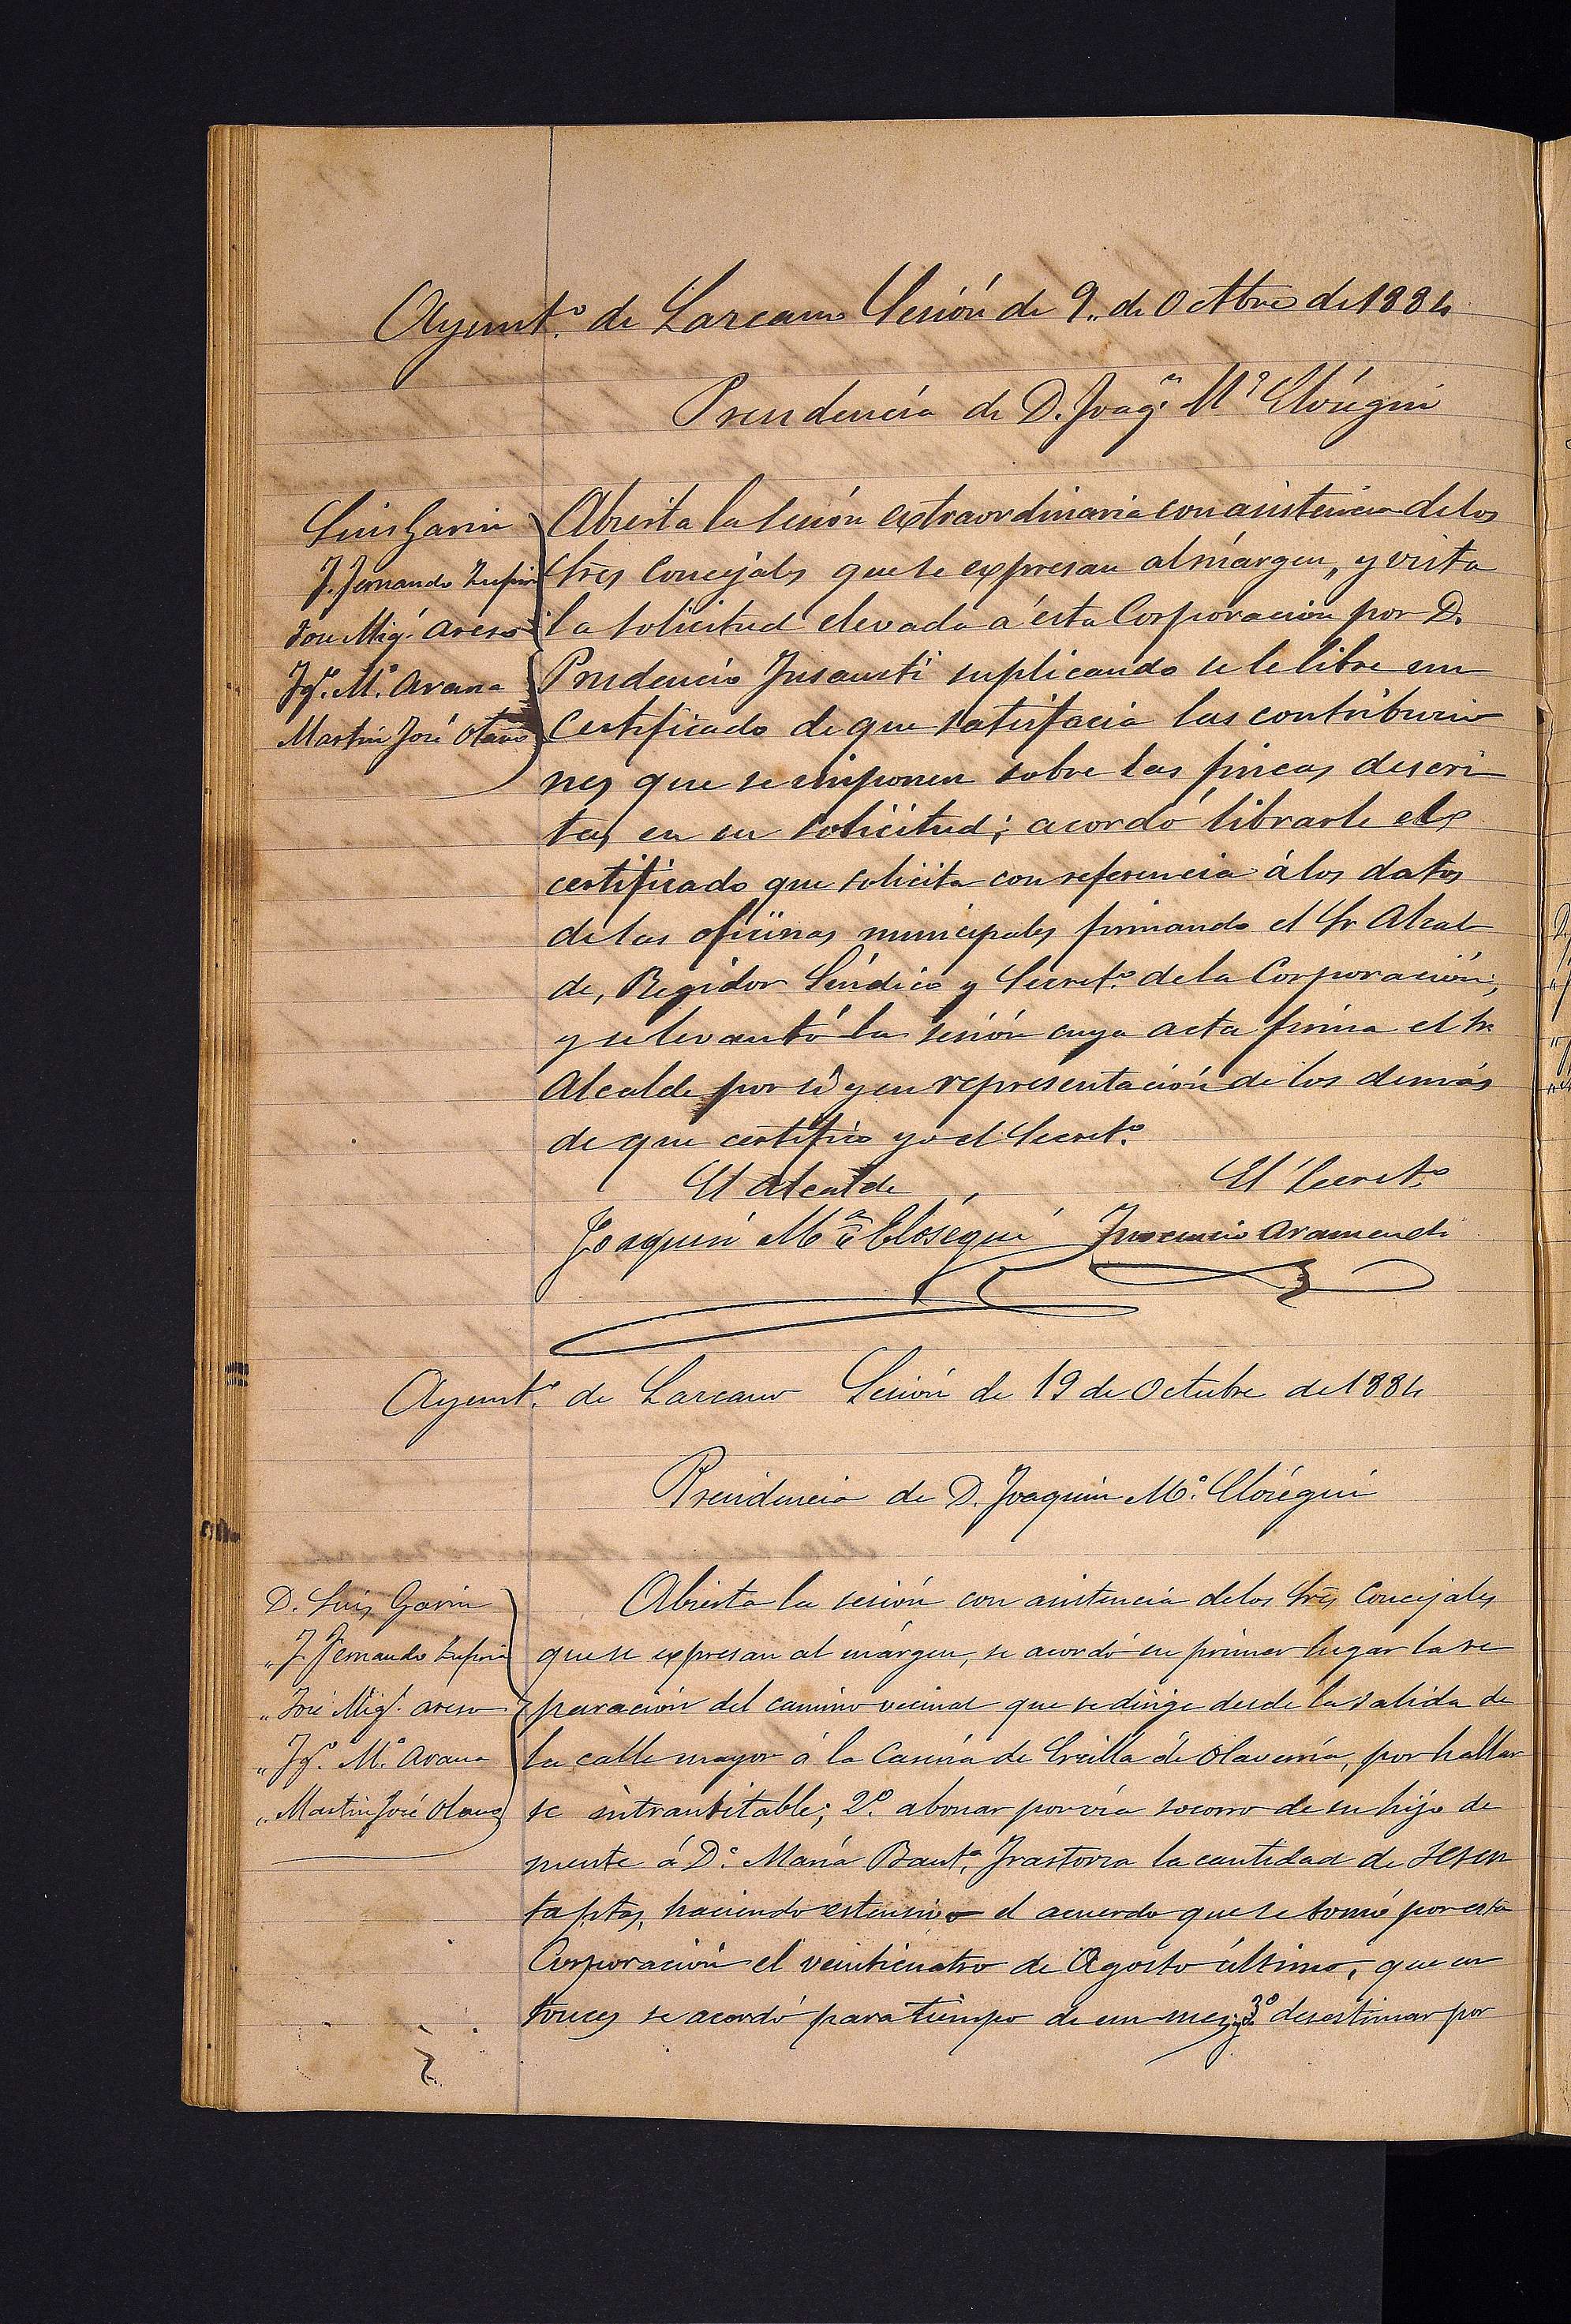 Ayunt.º de Lazcano Sesión de 9,, de Octbre de 1884
Presidencia de D. Joaq.n M.ª Elósegui
Luis Garin
J. Fernando Zufiria
José Mig.l Areso
Ig.º M.ª Arana
Martin José Otaño
Abierta la sesión extraordinaria con asistencia de los
Sres Concejales que se expresan al márgen, y vista
la solicitud elevada á ésta Corporación por D.
Prudencio Insausti suplicando se le libre un
Certificado de que satisfacia las contribucio
nes que se imponen sobre las fincas descri
tas en su solicitud; acordó librarle el
certificado que solicita con referencia á los datos
de las oficinas municipales firmando el Sr Alcal
de, Regidor Sindico y Secret.º de la Corporación;
y se levantó la sesión cuya acta firma el Sr.
Alcalde por sí y en representación de los demás
de que certifico yo el Secret.º
El Alcalde El Secret.º
Joaquin M.ª Elósegui Inocencio Aramendi
Ayunt.º de Lazcano Sesión de 19 de Octubre de 1884
Presidencia de D. Joaquin M.ª Elósegui
D. Luis Garin
,, J. Fernando Zufiria
,, José Mig.l Areso
,, Ig.º M.ª Arana
,, Martin José Otaño
Abierta la sesión con asistencia de los Sres Concejales
que se expresan al márgen, se acordó en primer lugar la re
paración del camino vecinal que se dirige desde la salida de
la calle mayor á la Caseria de Ercilla de Olaverría, por hallar
se intransitable; 2.º abonar por via socorro de su hijo de
mente á D.ª María Baut.ª Irastorza la cantidad de sesen
ta ptas, haciendo estensivo el acuerdo que se tomó por esta
Corporación el veinticuatro de Agosto último, que en
tonces se acordó para tiempo de un mes; y 3º desestimar por